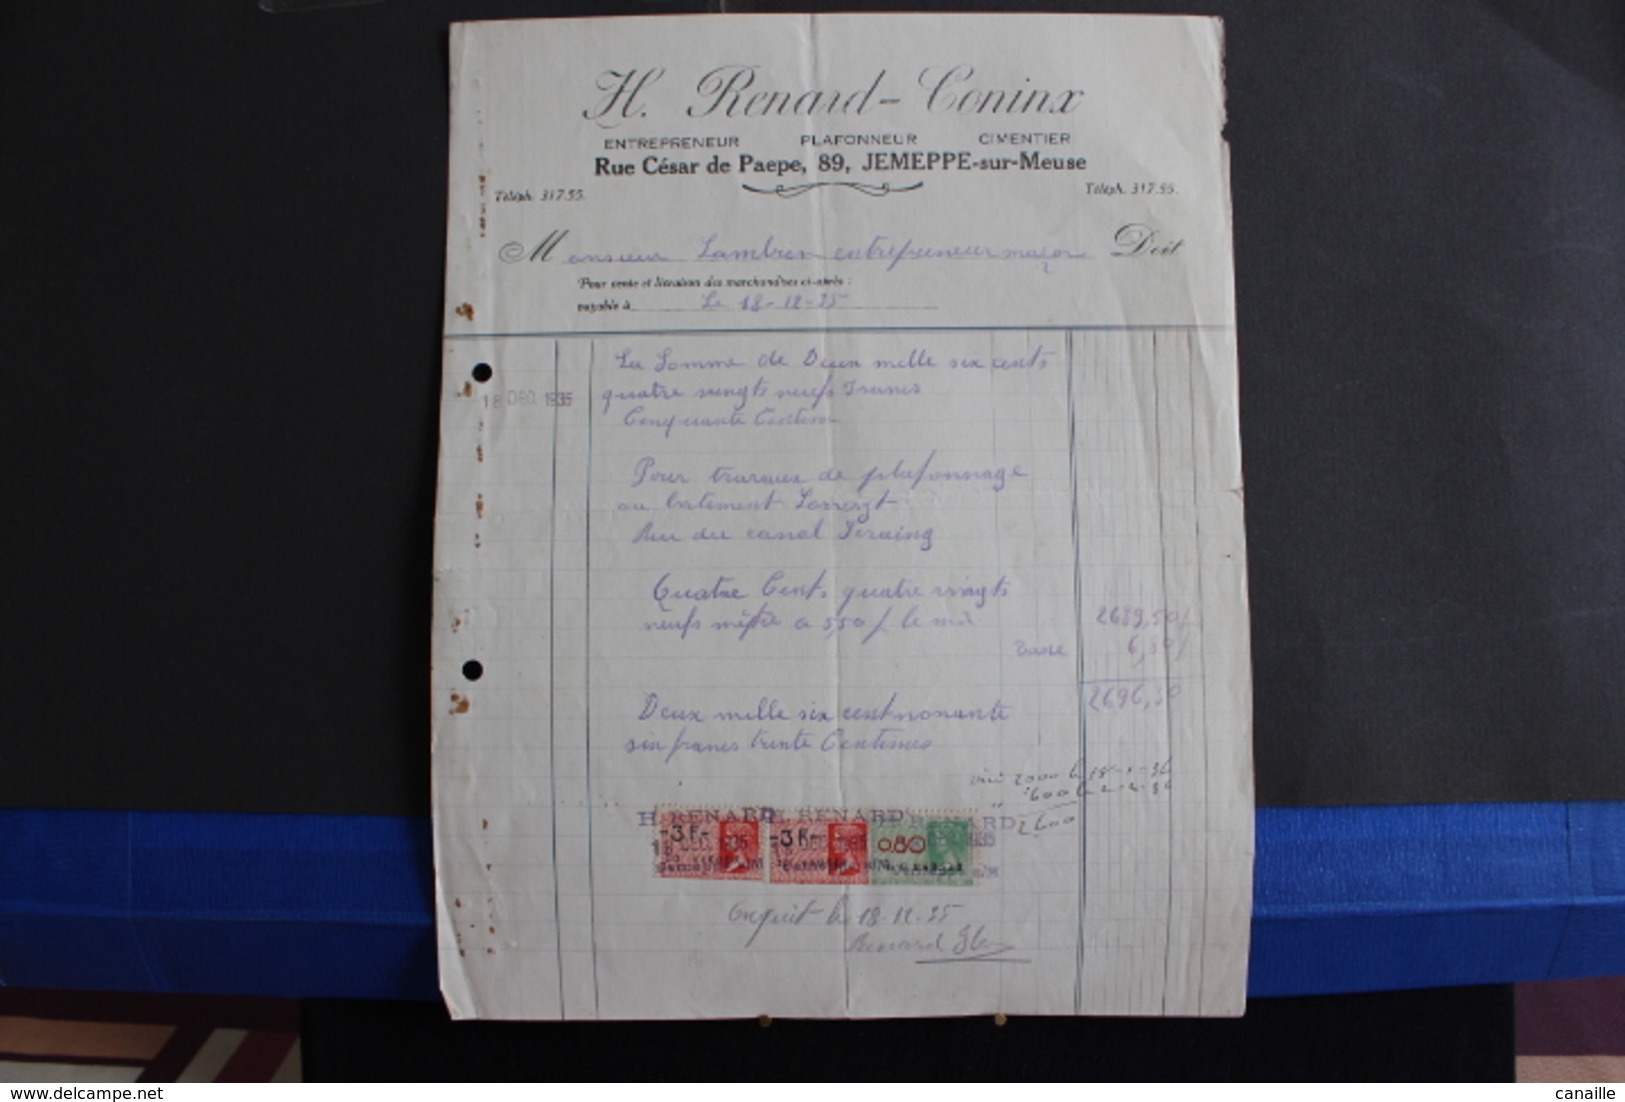 H. Renard-Coninx
ENTREPRENEUR PLAFONNEUR CIMENTIER
Rue César de Paepe, 89, JEMEPPE-sur-Meuse
Téléph. 317.55. Téléph. 317.55.
Monsieur Lambren entrepreneur maçon Doit
Pour vente et livraison des marchandises ci-après :
payable à Le 18-12-35
La Somme de Deux mille six cents
18 DEC. 1935 quatre vingts neufs Francs
Cenquante Centim
Pour travaux de plafonnage
au batiment
Rue du canal Seraing
Quatre Cents quatre vingts
neufs mètre a 5,50 f le 2689,50
Taxe 6,80
2696,30
Deux mille six cent nonante
six francs trente Centimes
2000 le
600 le
2600
H. RENARD H. RENARD RENARD
-3 F- -3 F- 0.80
DEC. 1935 DEC. 1935 1935
Acquit le 18.12.35
Renard
delcampe.net canaille